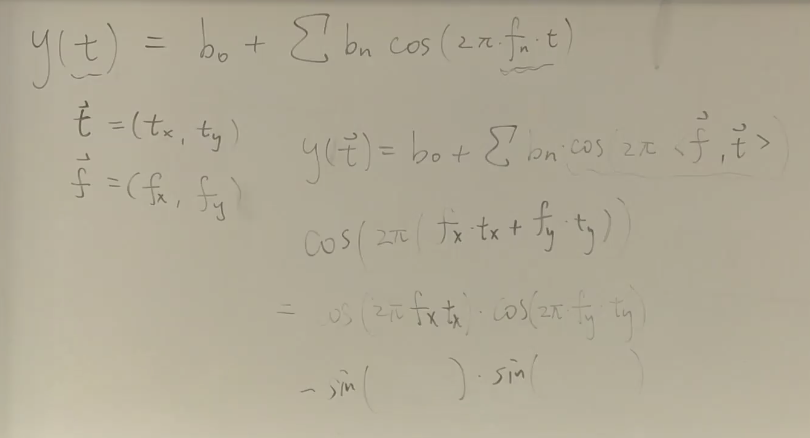 y(t) = b₀ + Σ bₙ cos(2π·fₙ·t)
t⃗ = (tₓ, t_y)
f⃗ = (fₓ, f_y)
y(t⃗) = b₀ + Σ bₙ·(cos 2π ⟨f⃗, t⃗⟩)
cos(2π(fₓ·tₓ + f_y·t_y))
= cos(2π fₓtₓ)·cos(2π·f_y t_y)
- sin( )·sin( )